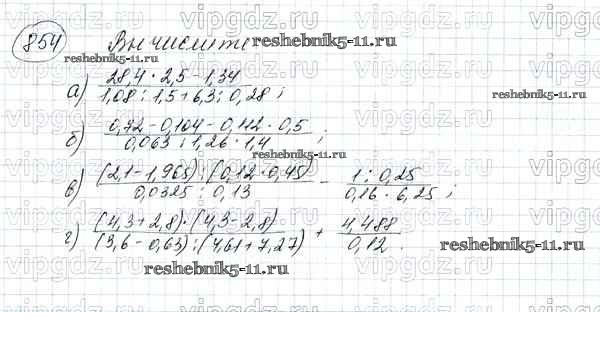 854 Вычислите reshebnik5-11.ru
vipgdz.ru vipgdz.ru vipgdz.ru
reshebnik5-11.ru
а) 28,4 · 2,5 - 1,34
1,08 : 1,5 + 6,3 : 0,28 ;
reshebnik5-11.ru
б) 0,72 - 0,104 - 0,112 · 0,5
0,063 : 1,26 · 1,4 ;
reshebnik5-11.ru
в) (2,1 - 1,965) : (0,12 · 0,45) - 1 : 0,25
0,0325 : 0,13 0,16 · 6,25 ;
reshebnik5-11.ru
г) (4,3 + 2,8) · (4,3 - 2,8) + 4,488
(3,6 - 0,63) : (4,61 + 7,27) 0,12 .
reshebnik5-11.ru
reshebnik5-11.ru
vipgdz.ru vipgdz.ru vipgdz.ru